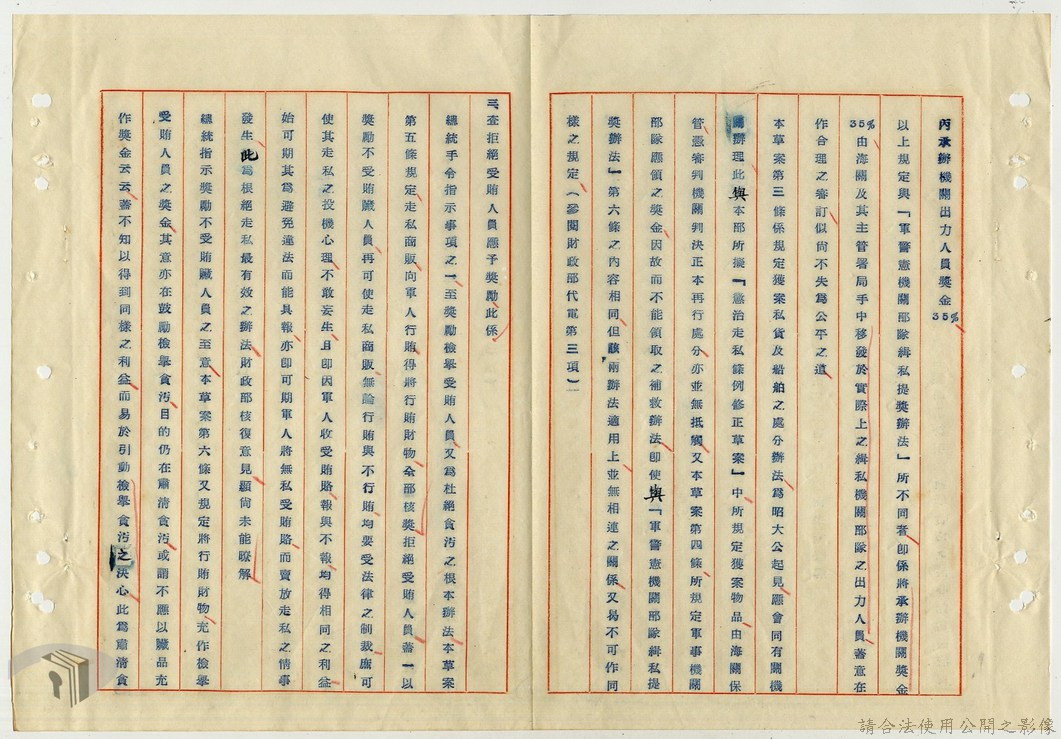 丙承辦機關出力人員獎金35%
以上規定與「軍警憲機關部隊緝私提獎辦法」所不同者卽係將承辦機關獎金
35%由海關及其主管署局手中移發於實際上之緝私機關部隊之出力人員蓄意在
作合理之審訂似尙不失爲公平之道
本草案第三條係規定獲案私貨及船舶之處分辦法爲昭大公起見應會同有關機
關辦理此與本部所擬「懲治走私條例修正草案」中所規定獲案物品由海關保
管憑審判機關判決正本再行處分亦並無抵觸又本草案第四條所規定軍事機關
部隊應領之獎金因故而不能領取之補救辦法卽使與「軍警憲機關部隊緝私提
獎辦法」第六條之內容相同但該兩辦法適用上並無相連之關係又曷不可作同
樣之規定(參閱財政部代電第三項)
三、查拒絕受賄人員應予獎勵此係
總統手令指示事項之一至獎勵檢舉受賄人員又爲杜絕貪汚之根本辦法本草案
第五條規定走私商販向軍人行賄得將行賄財物全部核獎拒絕受賄人員蓄一以
獎勵不受賄贓人員再可使走私商販無論行賄與不行賄均要受法律之制裁庶可
使其走私之投機心理不敢妄生且卽因軍人收受賄賂報與不報均得相同之利益
始可期其爲避免違法而能具報亦卽可期軍人將無私受賄賂而賣放走私之情事
發生此爲根絕走私最有效之辦法財政部核復意見顯尙未能瞭解
總統指示獎勵不受賄贓人員之至意本草案第六條又規定將行賄財物充作檢舉
受賄人員之獎金其意亦在鼓勵檢舉貪汚目的仍在肅清貪汚或謂不應以贓品充
作獎金云云蓄不知以得到同樣之利益而易於引動檢舉貪汚之決心此爲肅清貪
請合法使用公開之影像